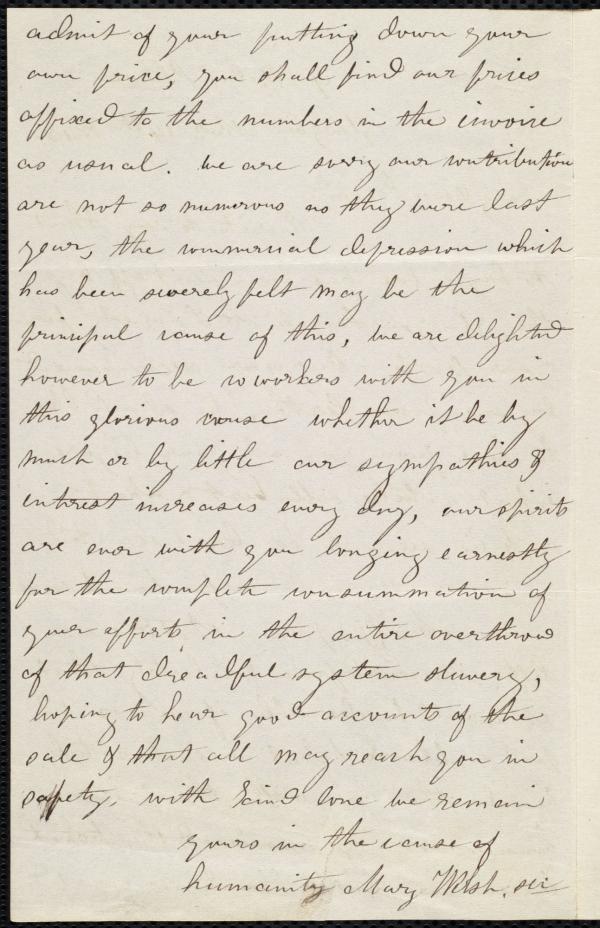 admit of your putting down your
own price, you shall find our prices
affixed to the numbers in the invoice
as usual. we are sorry our contribution
are not so numerous as they were last
year, the commercial depression which
has been severely felt may be the
principal cause of this, we are delighted
however to be coworkers with you in
this glorious cause whether it be by
much or by little our sympathies &
interest increases every day, our spirits
are ever with you longing earnestly
for the complete consummation of
your efforts in the entire overthrow
of that dreadful system slavery,
hoping to hear good accounts of the
sale & that all may reach you in
safety, with kind love we remain
yours in the cause of
humanity Mary Welsh.